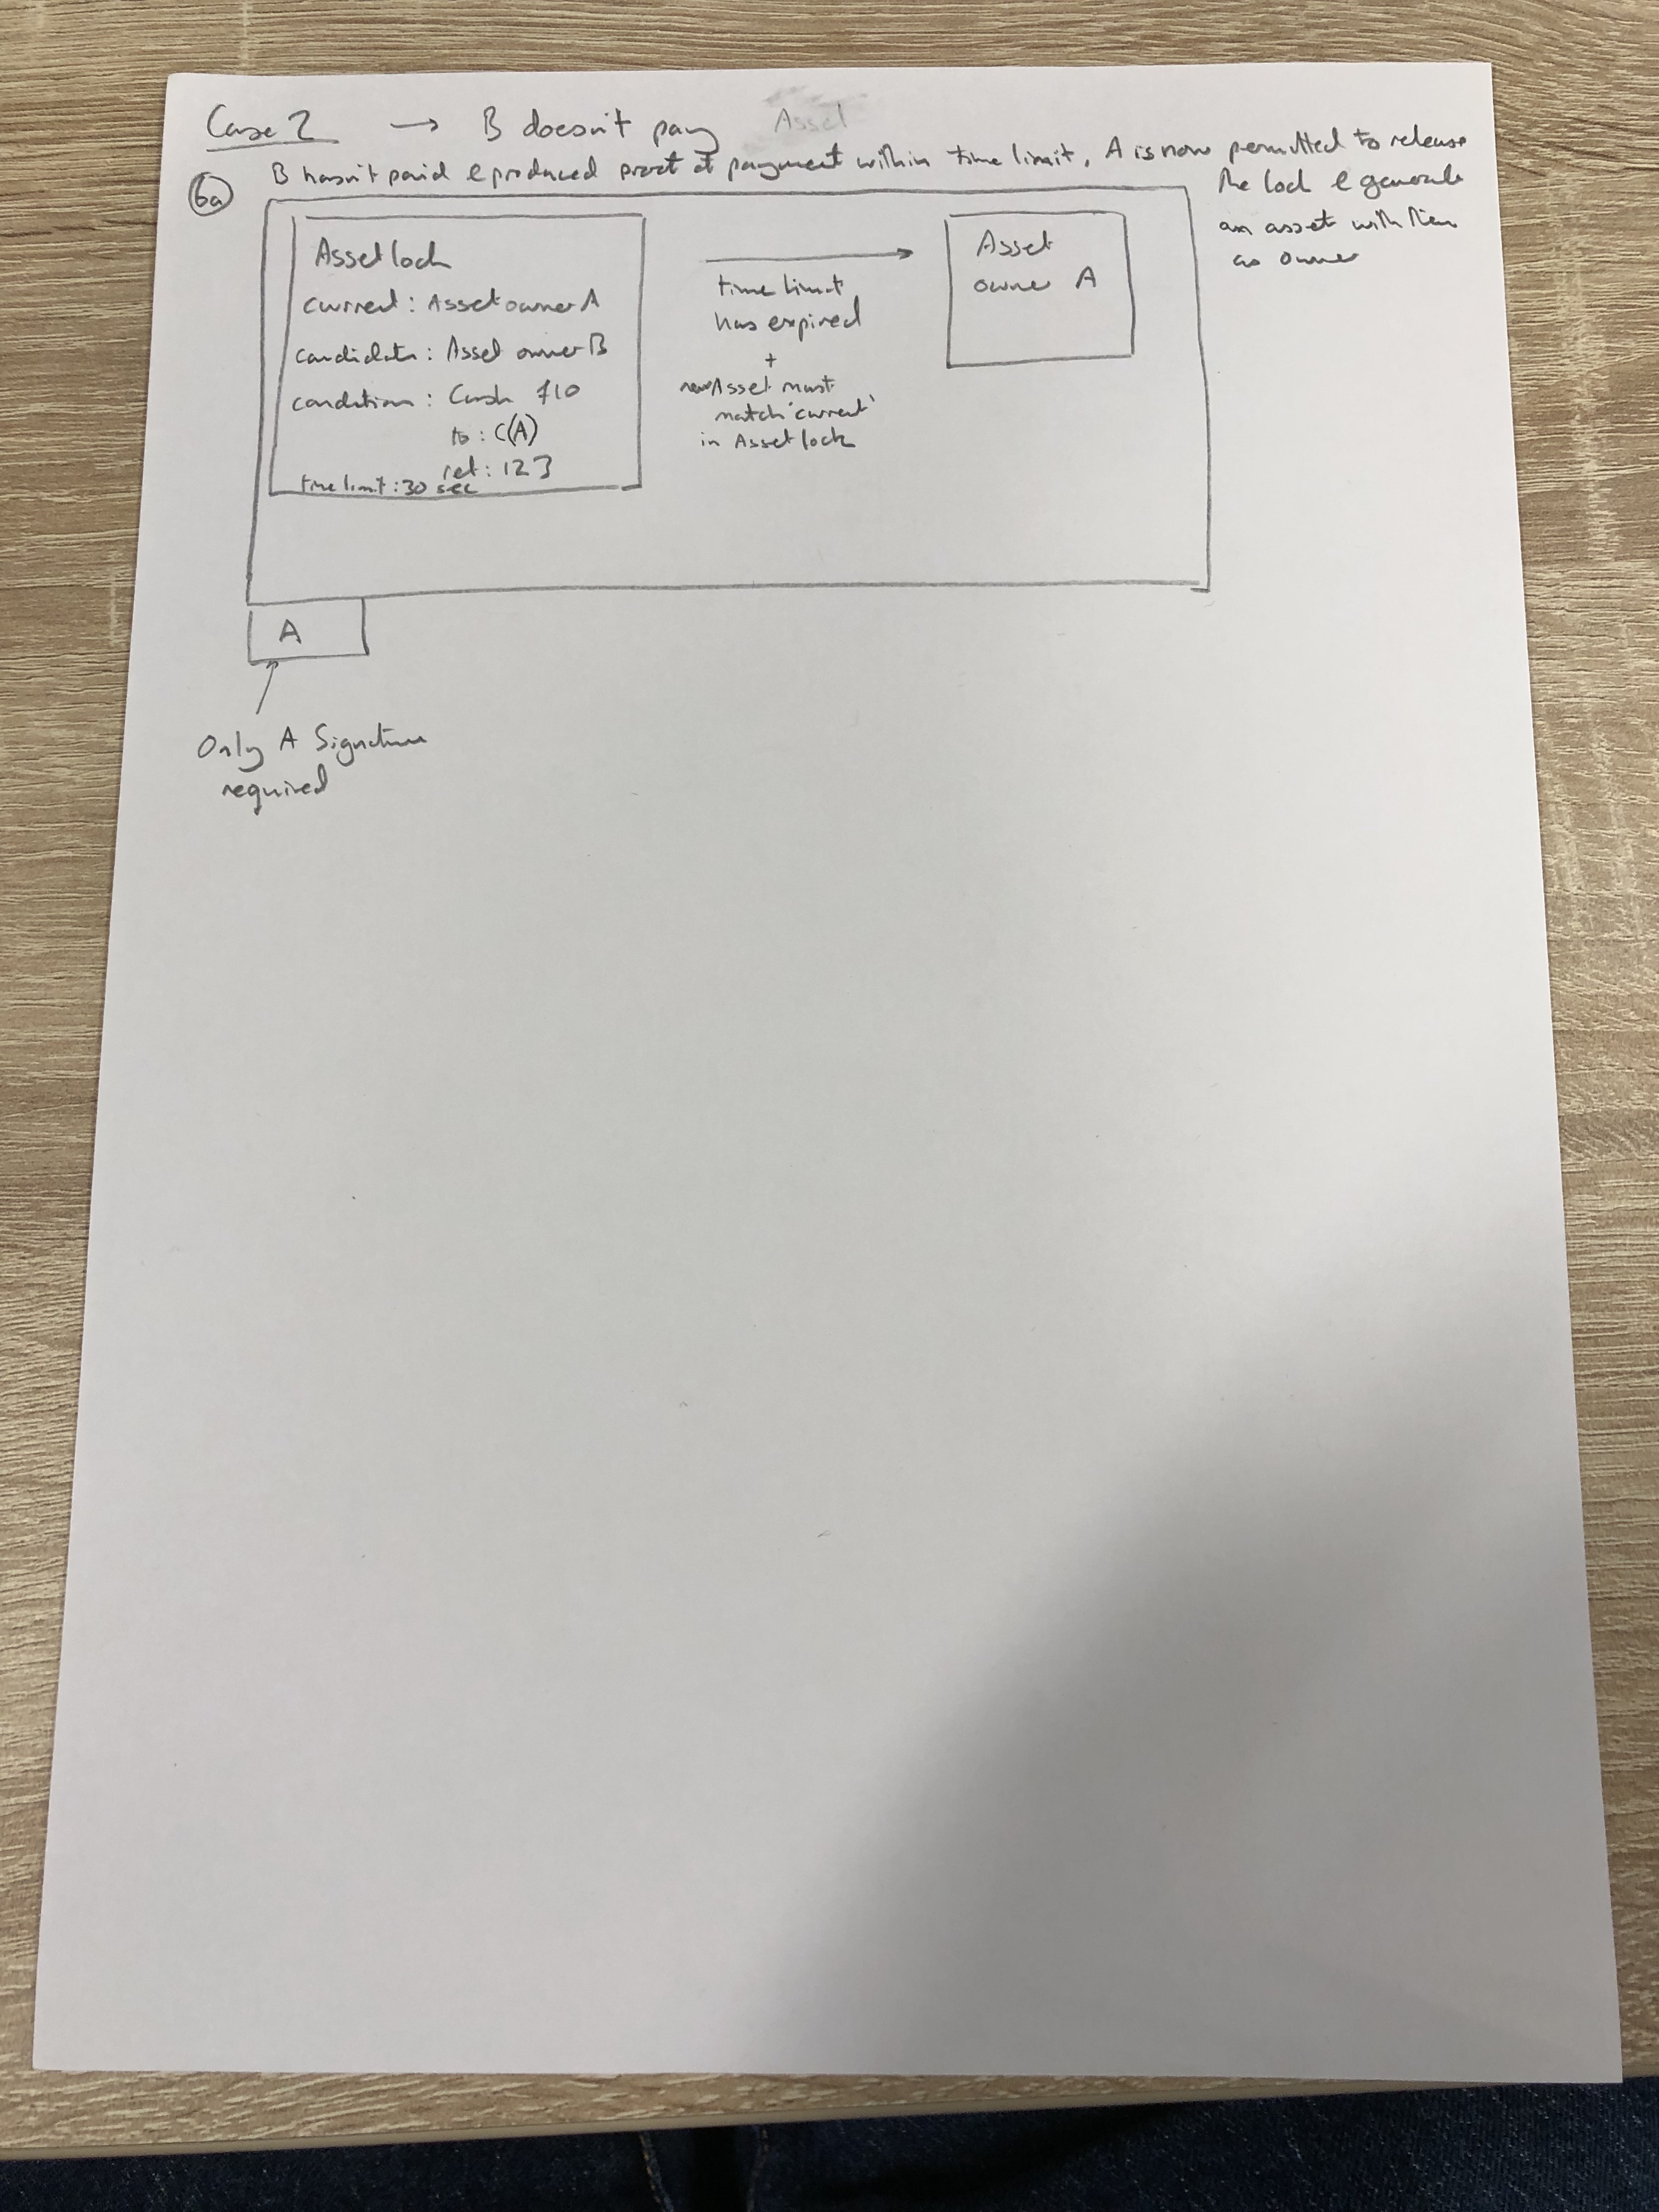 Case 2 → B doesn't pay Asset
B hasn't paid & produced proof of payment within time limit, A is now permitted to release
the lock & generate
an asset with them
as owner
6a
Asset lock
current: Asset owner A
candidate: Asset owner B
condition: Cash £10
to: C(A)
ref: 123
time limit: 30 sec
time limit
has expired
+
new Asset must
match 'current'
in Asset lock
Asset
owner A
A
Only A Signature
required